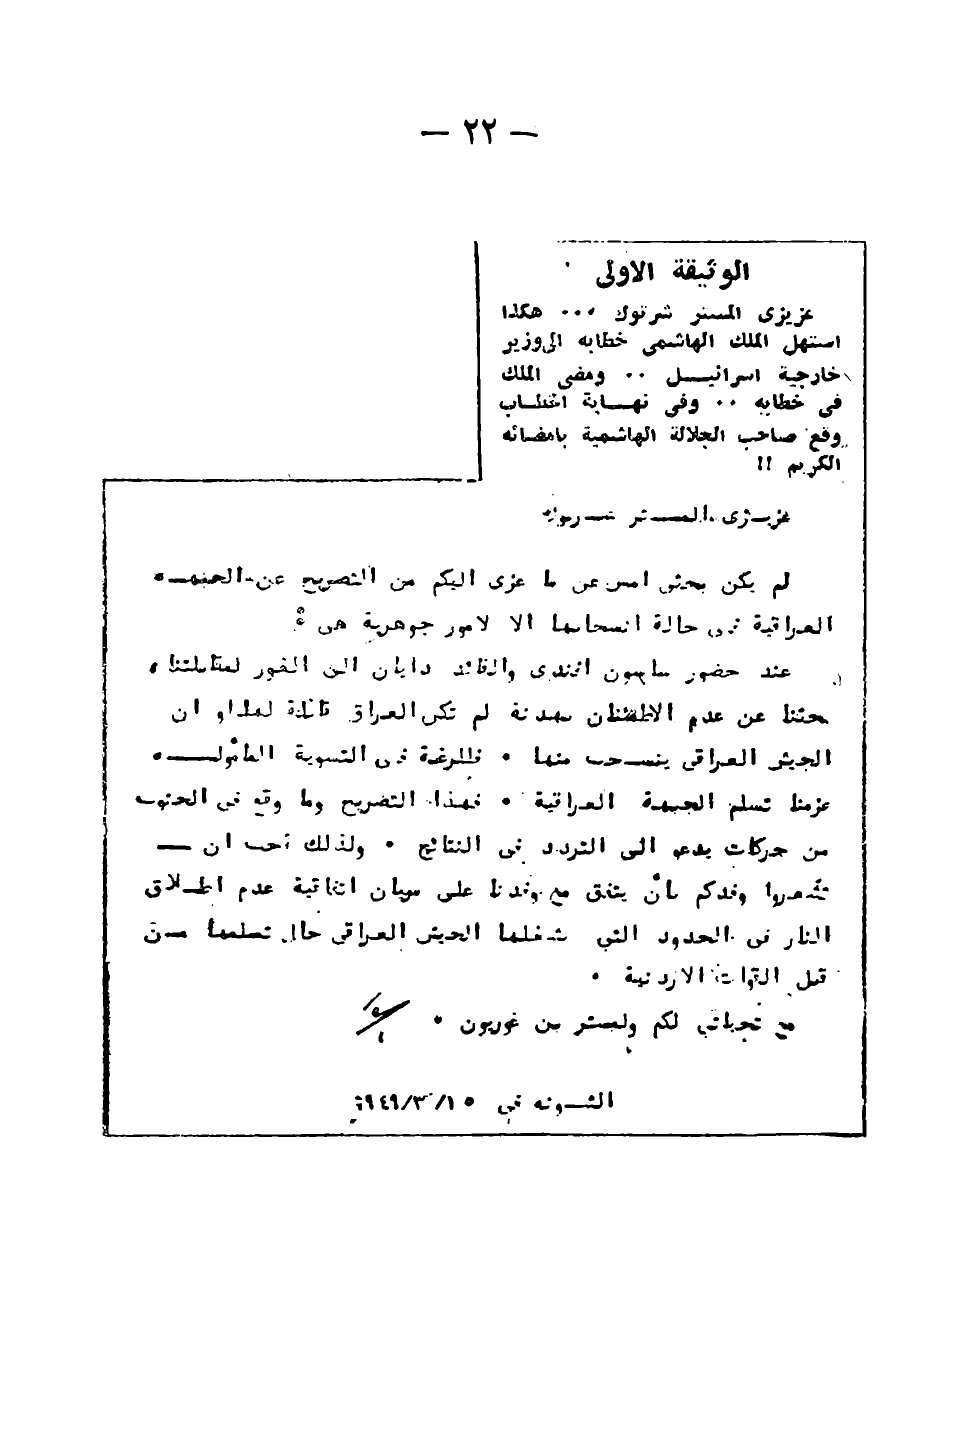 — ٢٢ —
الوثيقة الاولى
عزيزى المستر شرتوك ٠٠٠ هكذا
استهل الملك الهاشمى خطابه الى وزير
خارجية اسرائيـــل ٠٠ ومضى الملك
فى خطابه ٠٠ وفى نهـــاية الخطــاب
وقع صاحب الجلالة الهاشمية بامضائه
الكريم !!
عزيــزى المســتر شــرتوك
لم يكن بحثى امس عن ما عزى اليكم من التصريح عن الجبهــة
العراقية فى حالة انسحابها الا لامور جوهرية هى :
عند حضور ساسون افندى والقائد دايان الى الغور لمقابلتنا ،
بحثنا عن عدم الاطمئنان بهدنة لم تكن العراق قائلة لها او ان
الجيش العراقى ينســحب منها ٠ فللرغبة فى التسوية المأمولــــة
عزمنا تسلم الجبهة العراقية ٠ فهذا التصريح وما وقع فى الجنوب
من حركات يدعو الى التردد فى النتائج ٠ ولذلك احب ان ــ
تشعروا وفدكم بأن يتفق مع وفدنا على سريان اتفاقية عدم اطــلاق
النار فى الحدود التي شغلها الجيش العراقى حال تسلمها مــن
قبل القوات الاردنية ٠
مع تحياتي لكم ولمستر بن غوريون ٠
الشــونه في ١٥/٣/١٩٤٩